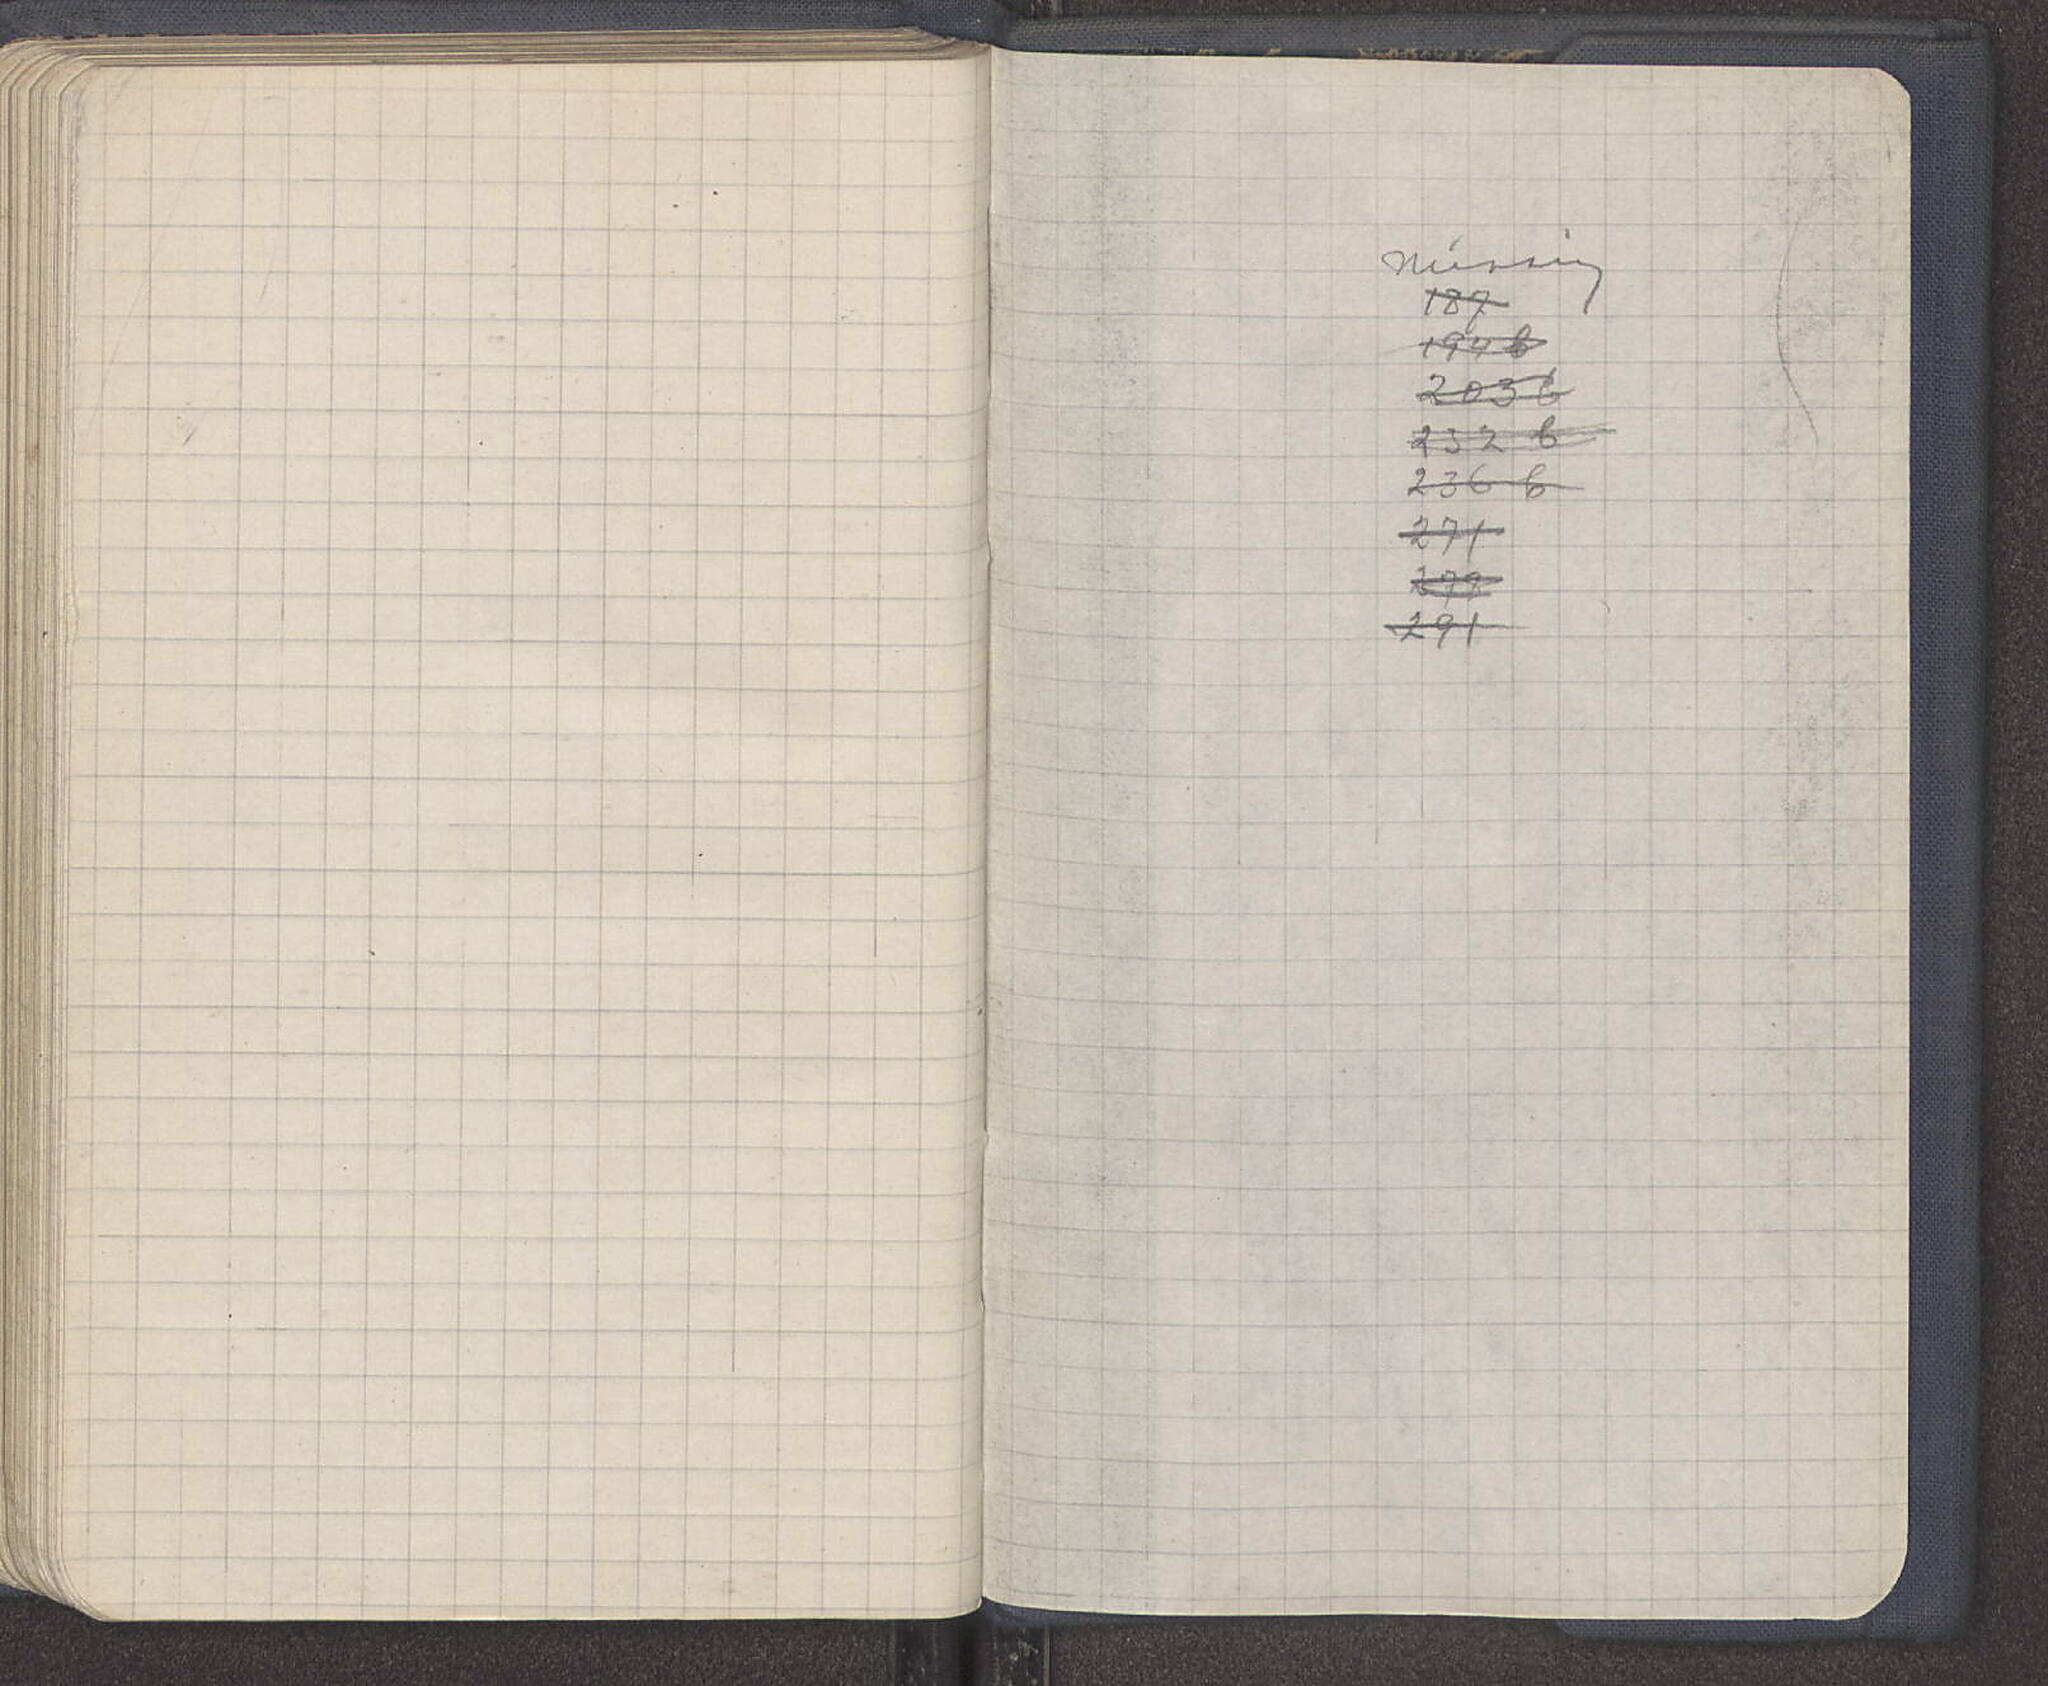 Missing
187
194 b
203 b
232 b
236 b
271
277
291